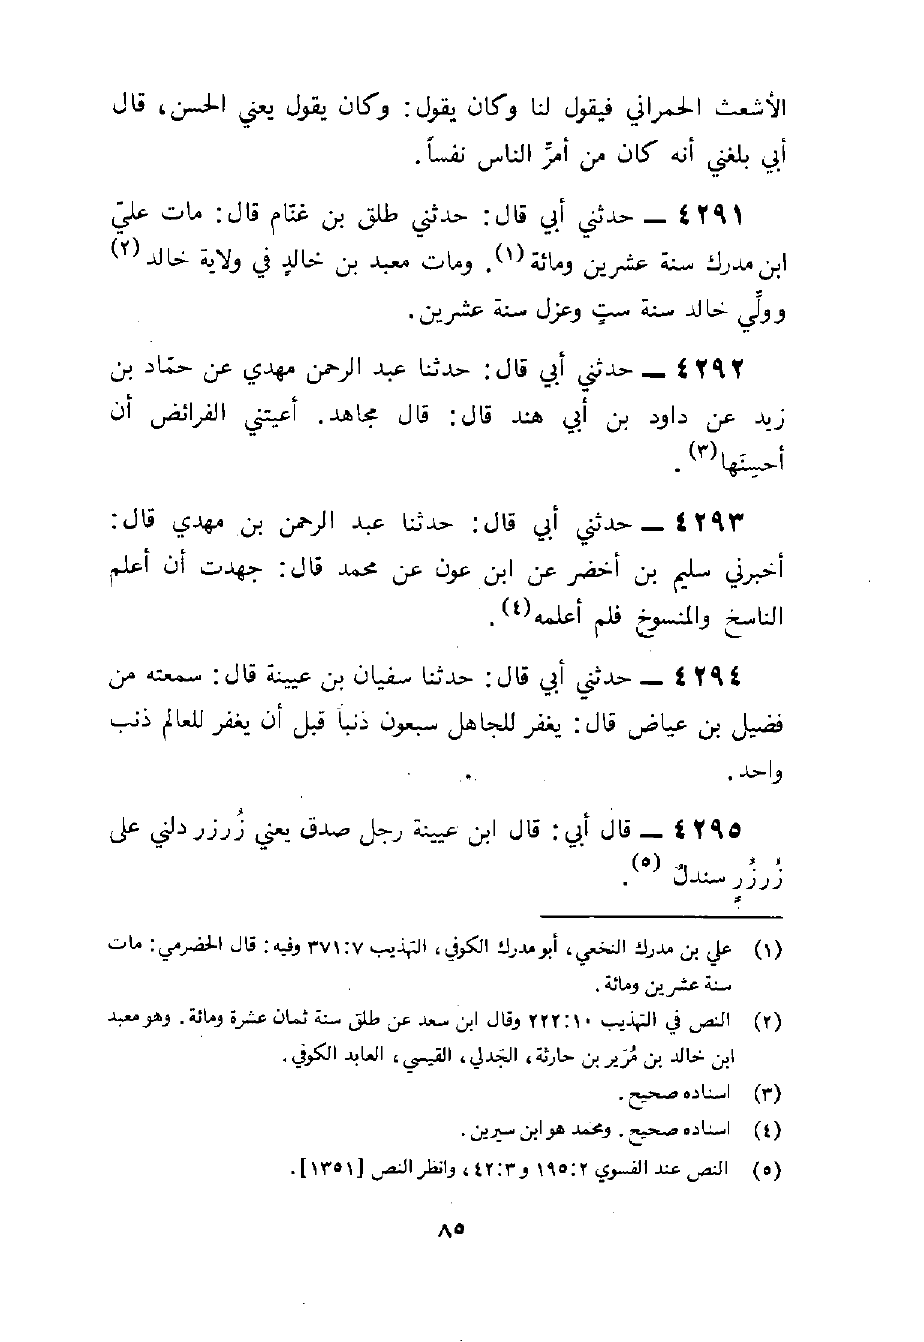 الأشعث الحمراني فيقول لنا وكان يقول: وكان يقول يعني الحسن، قال
أبي بلغني أنه كان من أمرِّ الناس نفساً.
٤٢٩١ ــ حدثني أبي قال: حدثني طلق بن غنّام قال: مات عليّ
ابن مدرك سنة عشرين ومائة(١). ومات معبد بن خالدٍ في ولاية خالد(٢)
وولِّي خالد سنة ستٍ وعزل سنة عشرين.
٤٢٩٢ ــ حدثني أبي قال: حدثنا عبد الرحمن مهدي عن حمّاد بن
زيد عن داود بن أبي هند قال: قال مجاهد. أعيتني الفرائض أن
أحسِنَها(٣).
٤٢٩٣ ــ حدثني أبي قال: حدثنا عبد الرحمن بن مهدي قال:
أخبرني سليم بن أخضر عن ابن عون عن محمد قال: جهدت أن أعلم
الناسخ والمنسوخ فلم أعلمه(٤).
٤٢٩٤ ــ حدثني أبي قال: حدثنا سفيان بن عيينة قال: سمعته من
فضيل بن عياض قال: يغفر للجاهل سبعون ذنباً قبل أن يغفر للعالم ذنب
واحد.
٤٢٩٥ ــ قال أبي: قال ابن عيينة رجل صدق يعني زُرزر دلني على
زُرزُرٍ سندلٌ (٥).
(١) علي بن مدرك النخعي، أبو مدرك الكوفي، التهذيب ٣٧١:٧ وفيه: قال الحضرمي: مات
سنة عشرين ومائة.
(٢) النص في التهذيب ٢٢٢:١٠ وقال ابن سعد عن طلق سنة ثمان عشرة ومائة. وهو معبد
ابن خالد بن مُرَير بن حارثة، الجدلي، القيسي، العابد الكوفي.
(٣) اسناده صحيح.
(٤) اسناده صحيح. ومحمد هو ابن سيرين.
(٥) النص عند الفسوي ١٩٥:٢ و ٤٢:٣، وانظر النص [١٣٥١].
٨٥